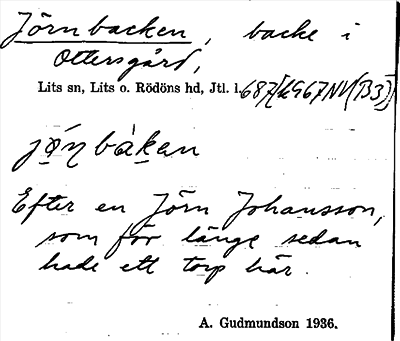 Jörnbacken, backe i
Ottersgård,
Lits sn, Lits o. Rödöns hd, Jtl. l.
jö́ŋ bàkan
Efter en Jörn Johansson,
som för länge sedan
hade ett torp här.
A. Gudmundson 1936.